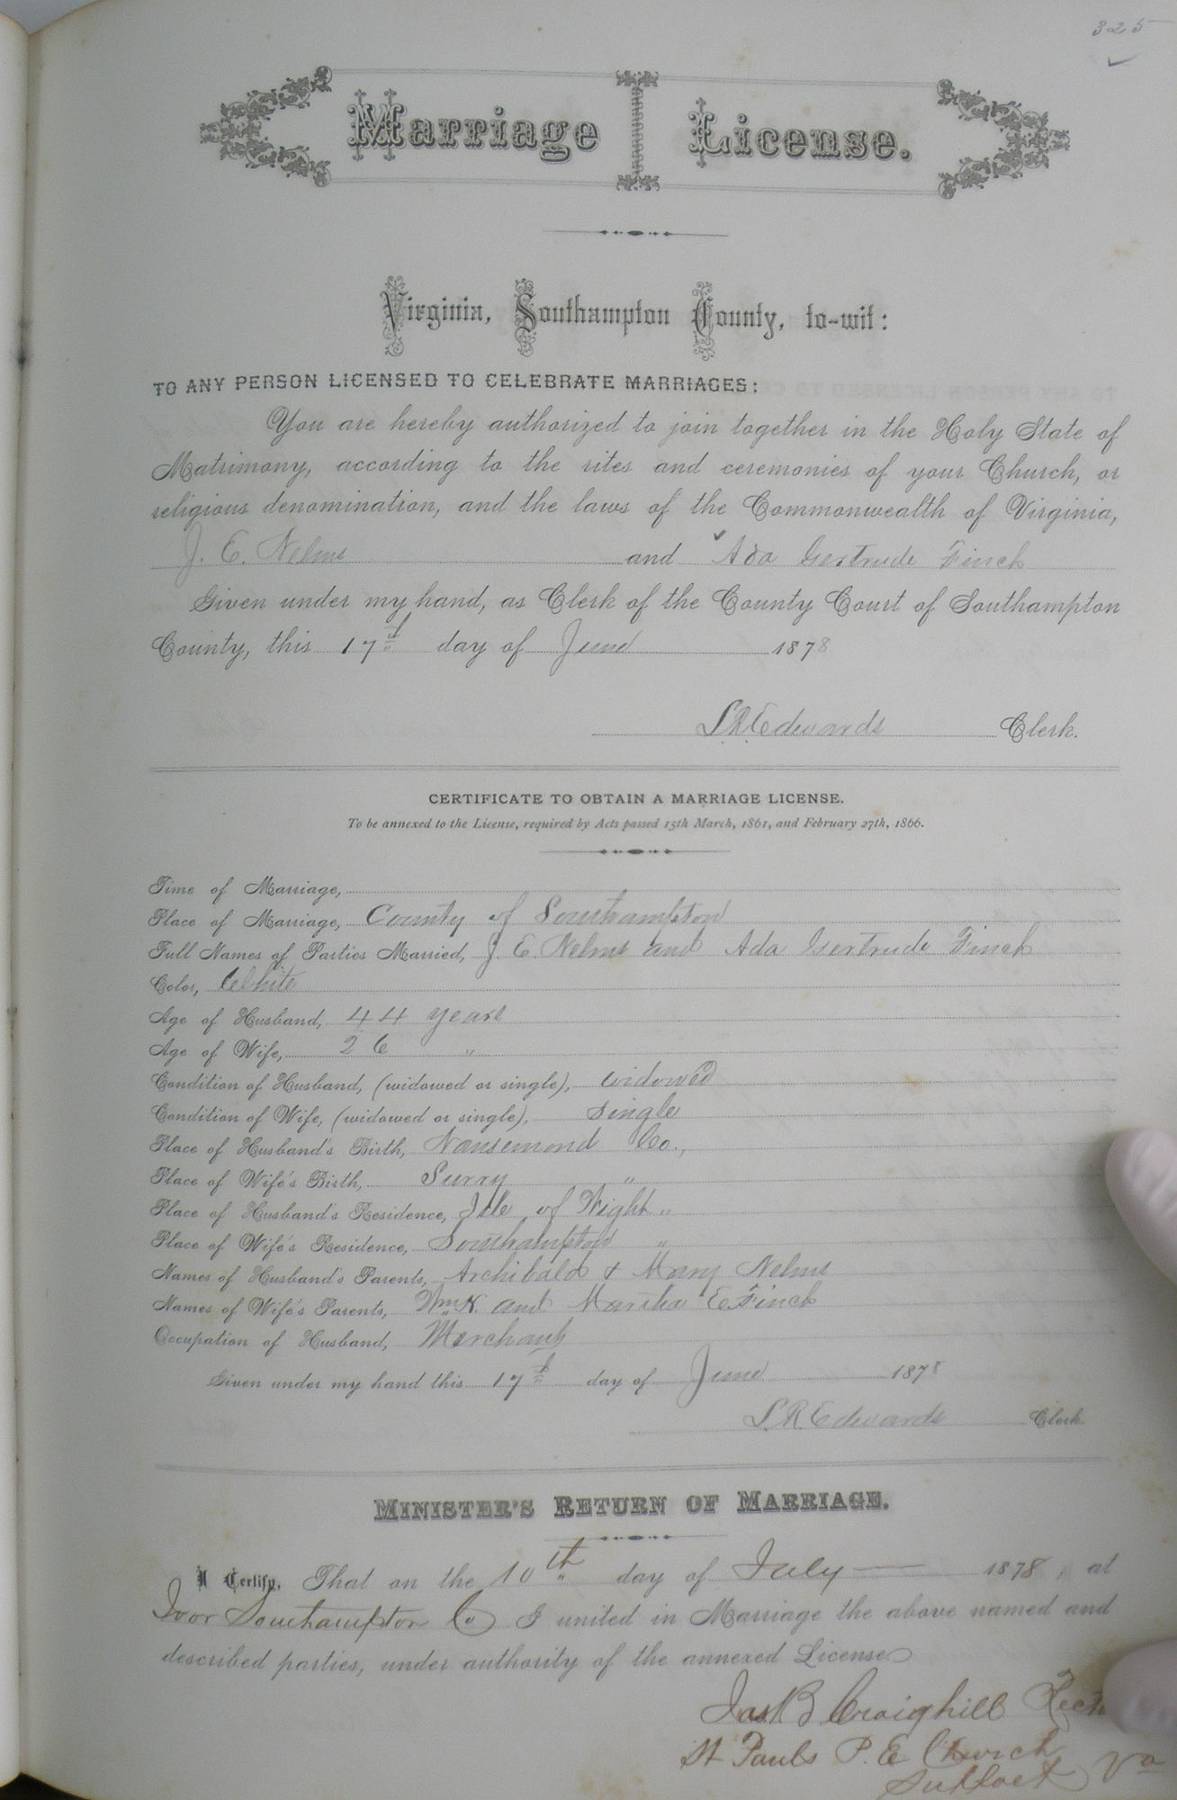 325
Marriage License.
Virginia, Southampton County, to-wit:
TO ANY PERSON LICENSED TO CELEBRATE MARRIAGES:
You are hereby authorized to join together in the Holy State of
Matrimony, according to the rites and ceremonies of your Church, or
religious denomination, and the laws of the Commonwealth of Virginia,
J. E. Nelms and Ada Gertrude Finch
Given under my hand, as Clerk of the County Court of Southampton
County, this 17th day of June 1878
L.R. Edwards Clerk.
CERTIFICATE TO OBTAIN A MARRIAGE LICENSE.
To be annexed to the License, required by Acts passed 15th March, 1861, and February 27th, 1866.
Time of Marriage,
Place of Marriage, County of Southampton
Full Names of Parties Married, J. E. Nelms and Ada Gertrude Finch
Color, White
Age of Husband, 44 years
Age of Wife, 26 "
Condition of Husband, (widowed or single), widowed
Condition of Wife, (widowed or single), single
Place of Husband's Birth, Nansemond Co.,
Place of Wife's Birth, Surry "
Place of Husband's Residence, Isle of Wight "
Place of Wife's Residence, Southampton "
Names of Husband's Parents, Archibald & Mary Nelms
Names of Wife's Parents, Wm H. and Martha E Finch
Occupation of Husband, Merchant
Given under my hand this 17th day of June 1878
L.R. Edwards Clerk
MINISTER'S RETURN OF MARRIAGE.
I Certify, That on the 10th day of July 1878, at
Ivor Southampton Co I united in Marriage the above named and
described parties, under authority of the annexed License
Jas B Craighill
St Pauls P. E Church
Suffolk Va